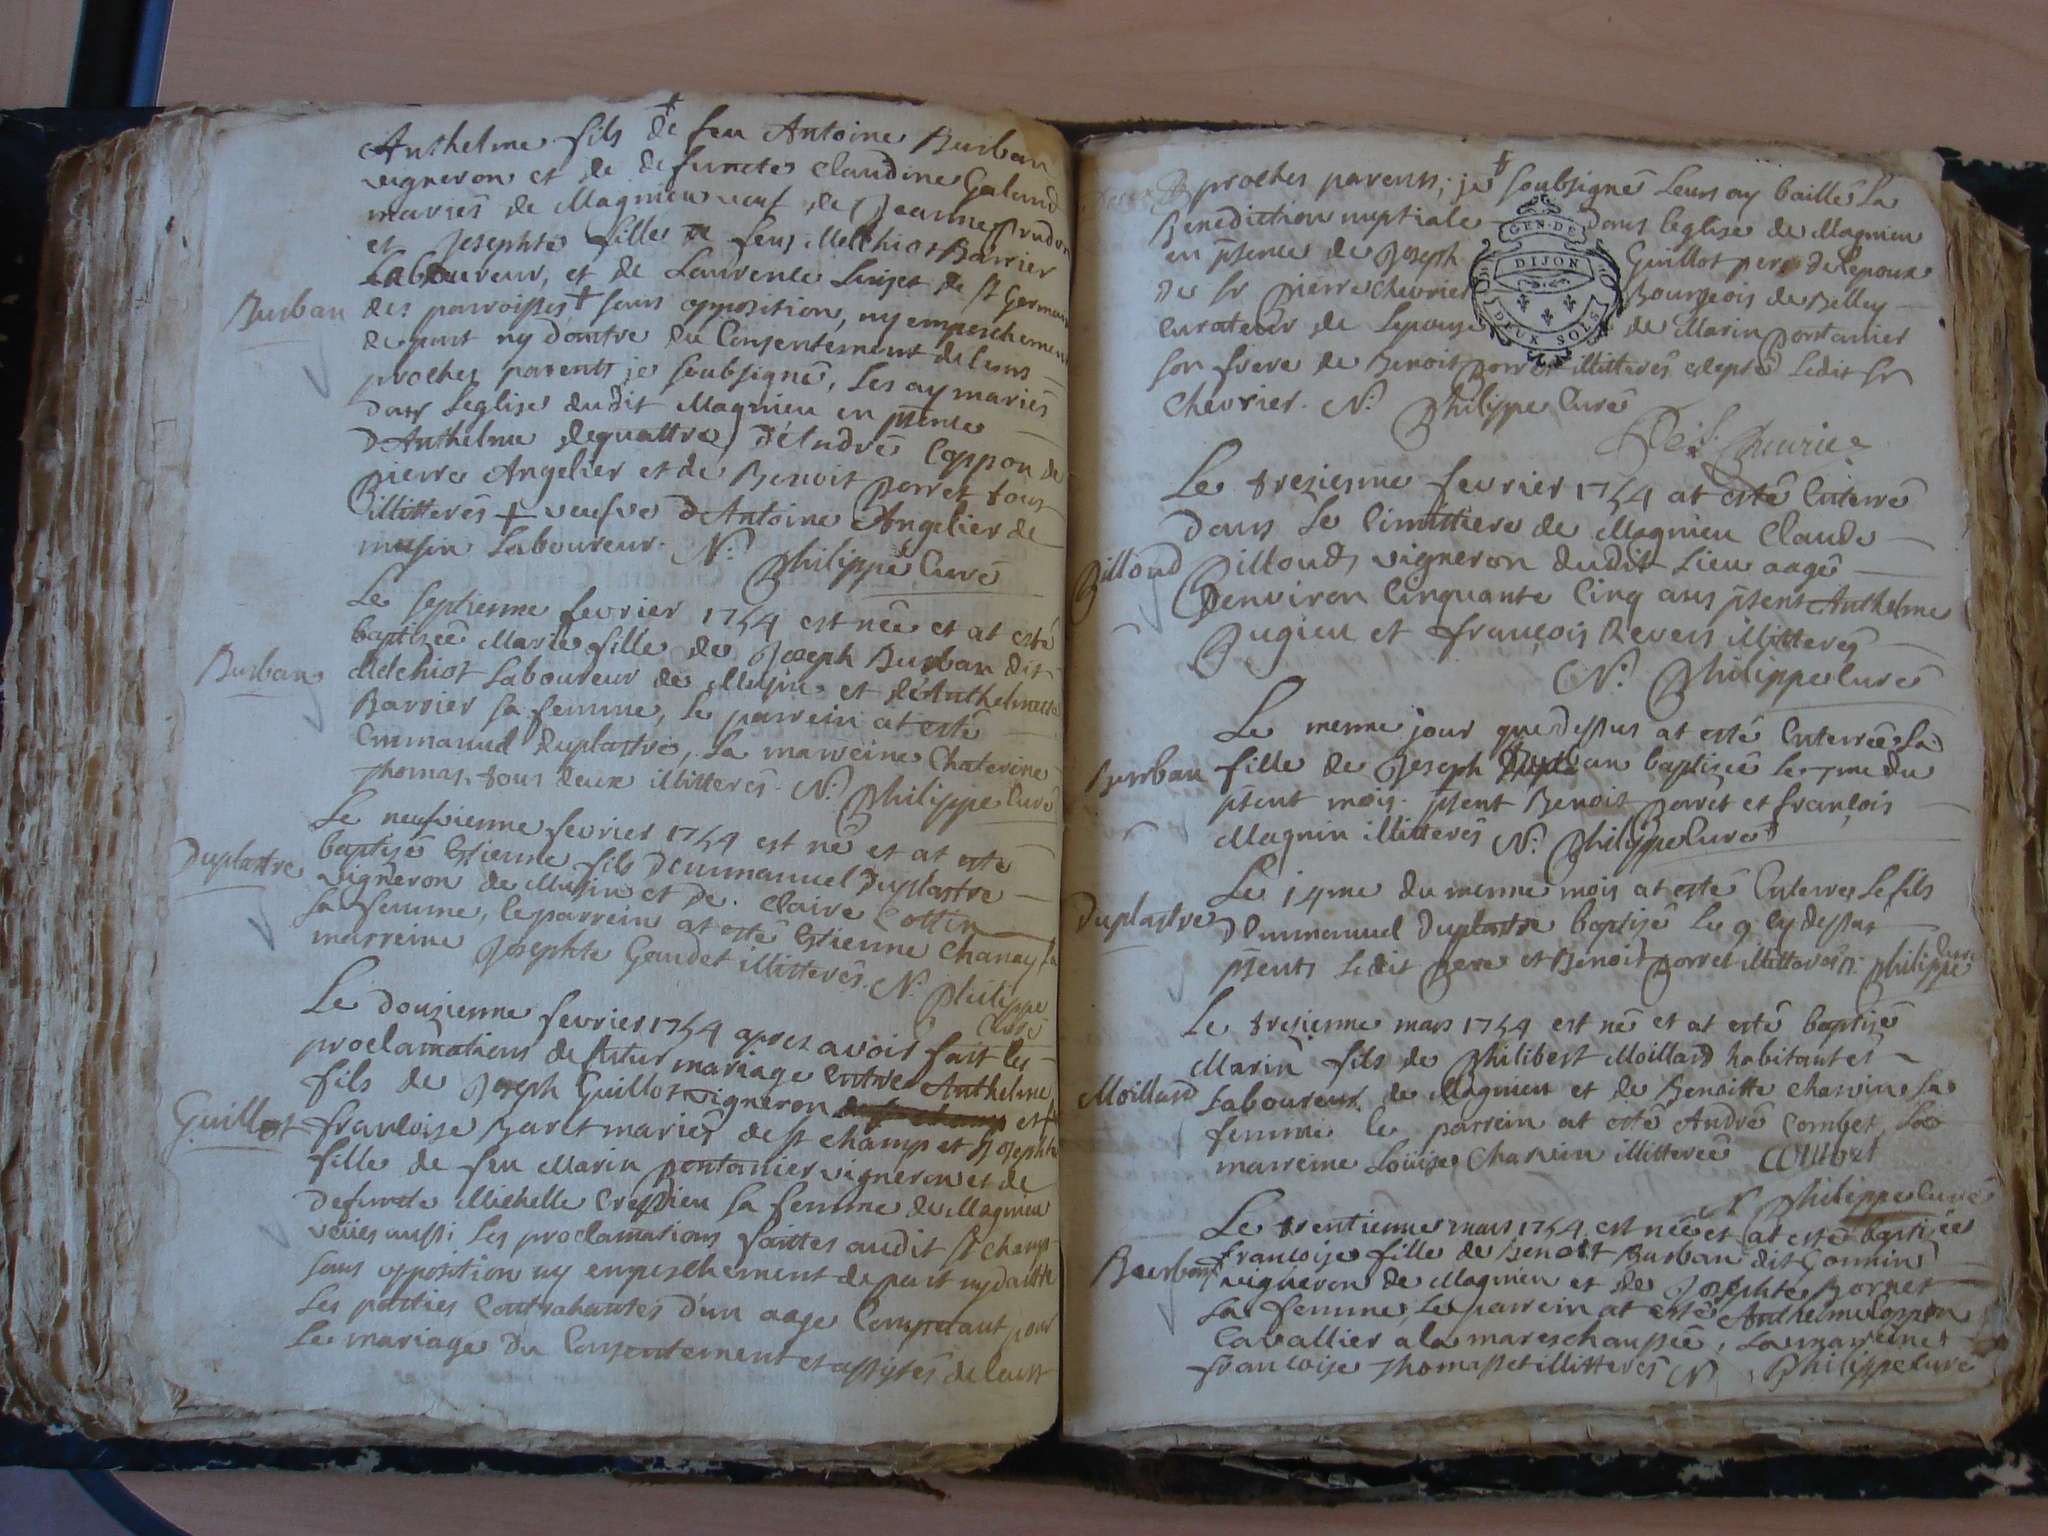 Anthelme fils de feu Antoine Burban
vigneron et de defuncte Claudine Galand
mariés de Magnieu veuf de Jeanne Prudon
et Josephte fille de feuz Melchiot Barrier
Laboureur, et de Laurence de st Germain
Burban
des parroisses + sans opposition, ny empeschement
de part ny dautre du Consentement de leurs
proches parents je soubsigné, les ay mariés
dans Leglise dudit Magnieu en pñce
D'Anthelme dequattre, d'Andre Coppon de
Pierre Angelier et de Benoit Porret tous
illitterés + veufve D'Antoine Angelier de
musin Laboureur. N. Philippe Curé
Le septienne fevrier 1754 est née et at esté
baptisée Marie fille de Joseph Burban dit
Burban
Melchiot Laboureur de Musin et de Anthelmette
Barrier sa femme, le parrein at esté
Emmanuel Duplastre, la marreine Chaterine
Thomas, tous deux illitterés. N. Philippe Curé
Le neufvienne fevrier 1754 est né et at esté
baptisé Estienne fils D'emmanuel Duplastre
Duplastre
vigneron de Musin et de Claire Cottin
sa femme, le parrein at esté Estienne Chanay la
marreine Josephte Gaudet illitterés. N. Philippe
Curé
Le douzienne fevrier 1754 apres avoir fait les
proclamations de futur mariage entre Anthelme
fils de Joseph Guillot vigneron et +
Guillot
francoise Baret mariés de st champ et Josephte
fille de feu Marin pontanier vigneron et de
defuncte Michelle Cressieu sa femme de Magnieu
veues aussi les proclamations faittes audit st champ
sans opposition ny empeschement de part ny dautre
Les parties Contrahantes d'un aage Competant pour
Le mariage du Consentement et assistés de leurs
proches parents; je soubsigné Leurs ay baillé la
Benediction nuptiale dans leglise de Magnieu
en pñce de Joseph Guillot pere de lepoux
GEN. DE
DIJON
DEUX SOLS
de sr Pierre Chevrier Bourgeois de Belley
curateur de Lepouse de Marin pontanier
son frere de Benoit Porret illitterés excepté Ledit sr
Chevrier. N. Philippe Curé
Le tresienne fevrier 1754 at esté Enterré
dans le Cimittiere de Magnieu Claude
Billoud
Billoud, vigneron dudit Lieu aagé
Denviron Cinquante Cinq ans pñts Anthelme
Bugieu et françois Revers illitterés
N. Philippe Curé
Le meme jour que dessus at esté Enterrée la
Burban
fille de Joseph baptisée le 7me du
pñt mois. pñt Benoit Porret et françois
Magnin illitterés N. Philippe Curé
Le 14me du meme mois at esté Enterré le fils
Duplastre
D'Emmanuel Duplastre baptisé Le 9 cy dessus
pñts Ledit Pere et Benoit Porret illitterés N. Philippe
Curé
Le tresienne mars 1754 est né et at esté baptisé
Marin fils de Philibert Moillard habitant et
Moillard
Laboureur de Magnieu et de Benoitte Charvin sa
femme le parrein at esté André Combet, la
marreine Loüise Charvin illitterée Combet
N Philippe Curé
Le trentienne mars 1754 est née et at esté baptisée
francoise fille de Benoit Burban dit Gonnin
Burban
vigneron de Magnieu et de Josephte Bornet
sa femme, le parrein at esté Anthelme Coppon
Cavallier a la mareschaussée, La marreine
francoise Thomasset illitterés N Philippe Curé